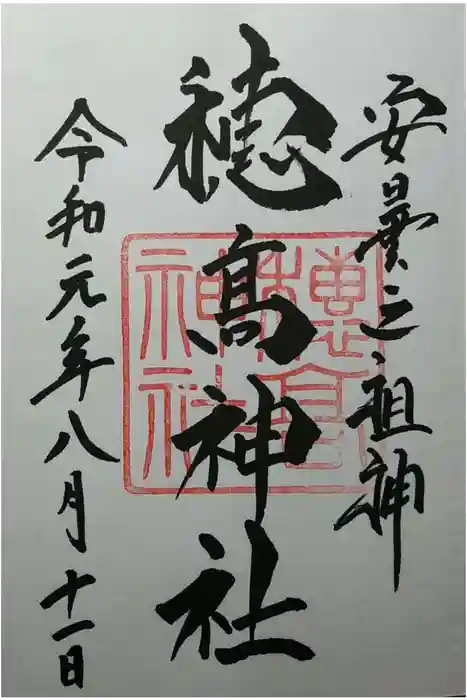 安曇之祖神
穂髙神社
穂高神社
令和元年八月十一日